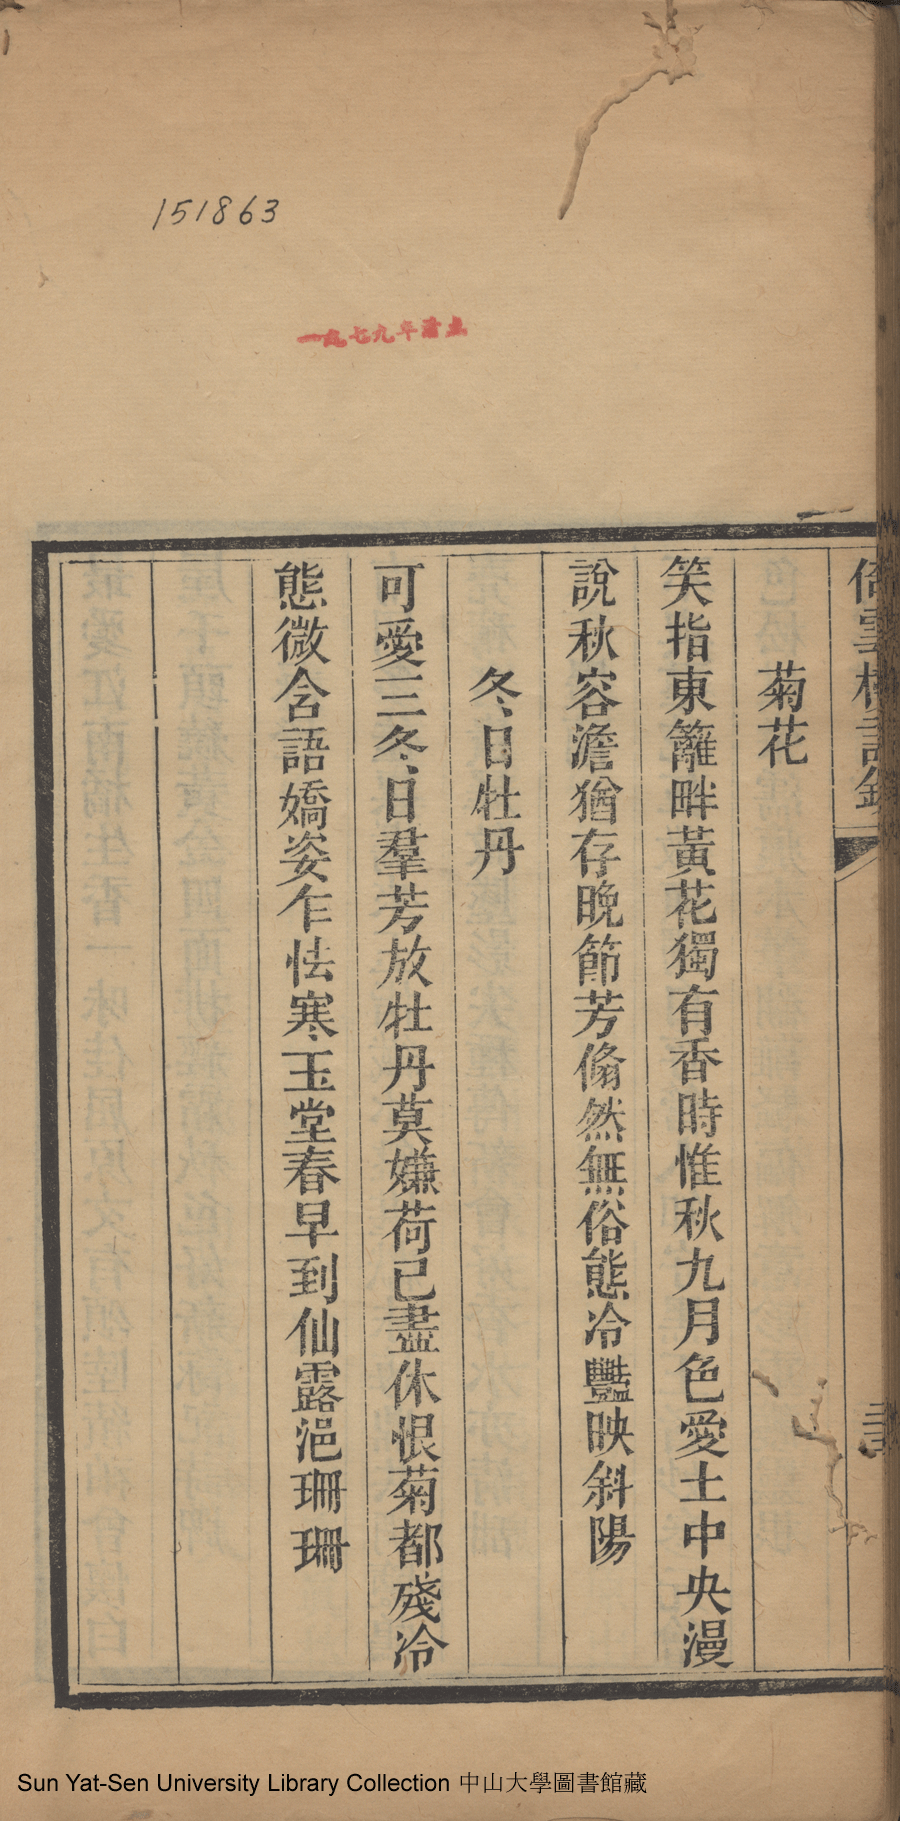 151863
一九七九年
菊花
笑指東籬畔黃花獨有香時惟秋九月色愛土中央漫
說秋容澹猶存晚節芳翛然無俗態冷豔映斜陽
冬日牡丹
可愛三冬日羣芳放牡丹莫嫌荷已盡休恨菊都殘冷
態微含語嬌姿乍怯寒玉堂春早到仙露浥珊珊
Sun Yat-Sen University Library Collection 中山大學圖書館藏